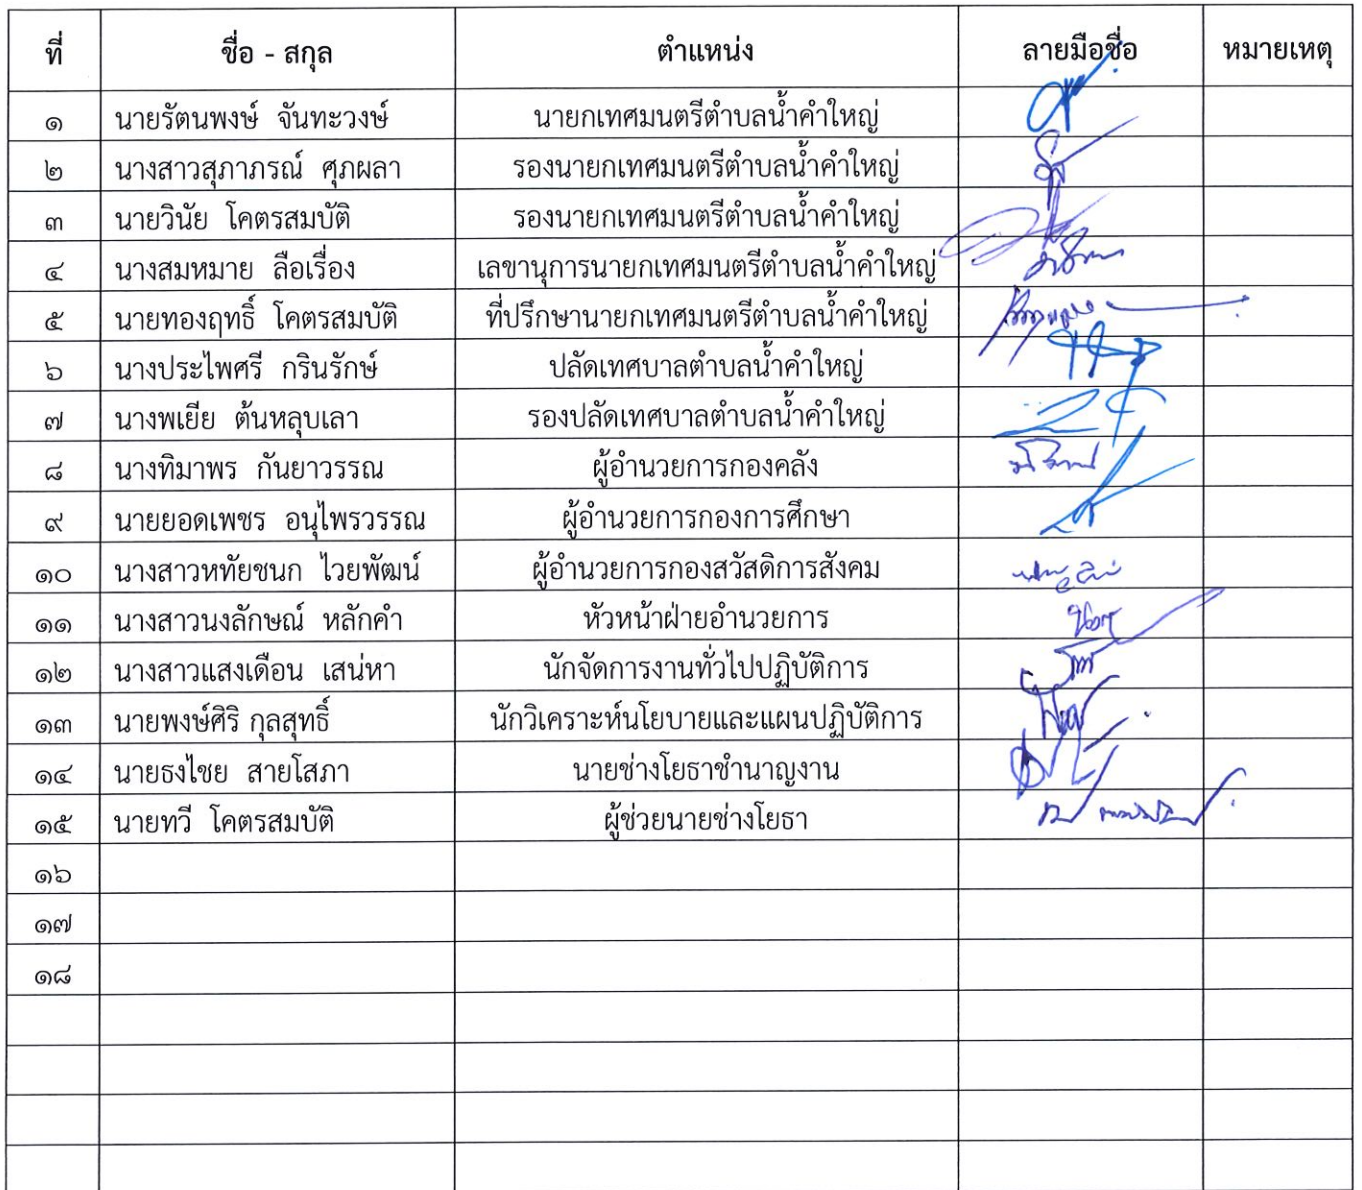 ที่ ชื่อ - สกุล ตำแหน่ง ลายมือชื่อ หมายเหตุ
๑ นายรัตนพงษ์ จันทะวงษ์ นายกเทศมนตรีตำบลน้ำคำใหญ่
๒ นางสาวสุภาภรณ์ ศุภผลา รองนายกเทศมนตรีตำบลน้ำคำใหญ่
๓ นายวินัย โคตรสมบัติ รองนายกเทศมนตรีตำบลน้ำคำใหญ่
๔ นางสมหมาย ลือเรื่อง เลขานุการนายกเทศมนตรีตำบลน้ำคำใหญ่
๕ นายทองฤทธิ์ โคตรสมบัติ ที่ปรึกษานายกเทศมนตรีตำบลน้ำคำใหญ่
๖ นางประไพศรี กรินรักษ์ ปลัดเทศบาลตำบลน้ำคำใหญ่
๗ นางพเยีย ต้นหลุบเลา รองปลัดเทศบาลตำบลน้ำคำใหญ่
๘ นางทิมาพร กันยาวรรณ ผู้อำนวยการกองคลัง
๙ นายยอดเพชร อนุไพรวรรณ ผู้อำนวยการกองการศึกษา
๑๐ นางสาวหทัยชนก ไวยพัฒน์ ผู้อำนวยการกองสวัสดิการสังคม
๑๑ นางสาวนงลักษณ์ หลักคำ หัวหน้าฝ่ายอำนวยการ
๑๒ นางสาวแสงเดือน เสน่หา นักจัดการงานทั่วไปปฏิบัติการ
๑๓ นายพงษ์ศิริ กุลสุทธิ์ นักวิเคราะห์นโยบายและแผนปฏิบัติการ
๑๔ นายธงไชย สายโสภา นายช่างโยธาชำนาญงาน
๑๕ นายทวี โคตรสมบัติ ผู้ช่วยนายช่างโยธา
๑๖
๑๗
๑๘